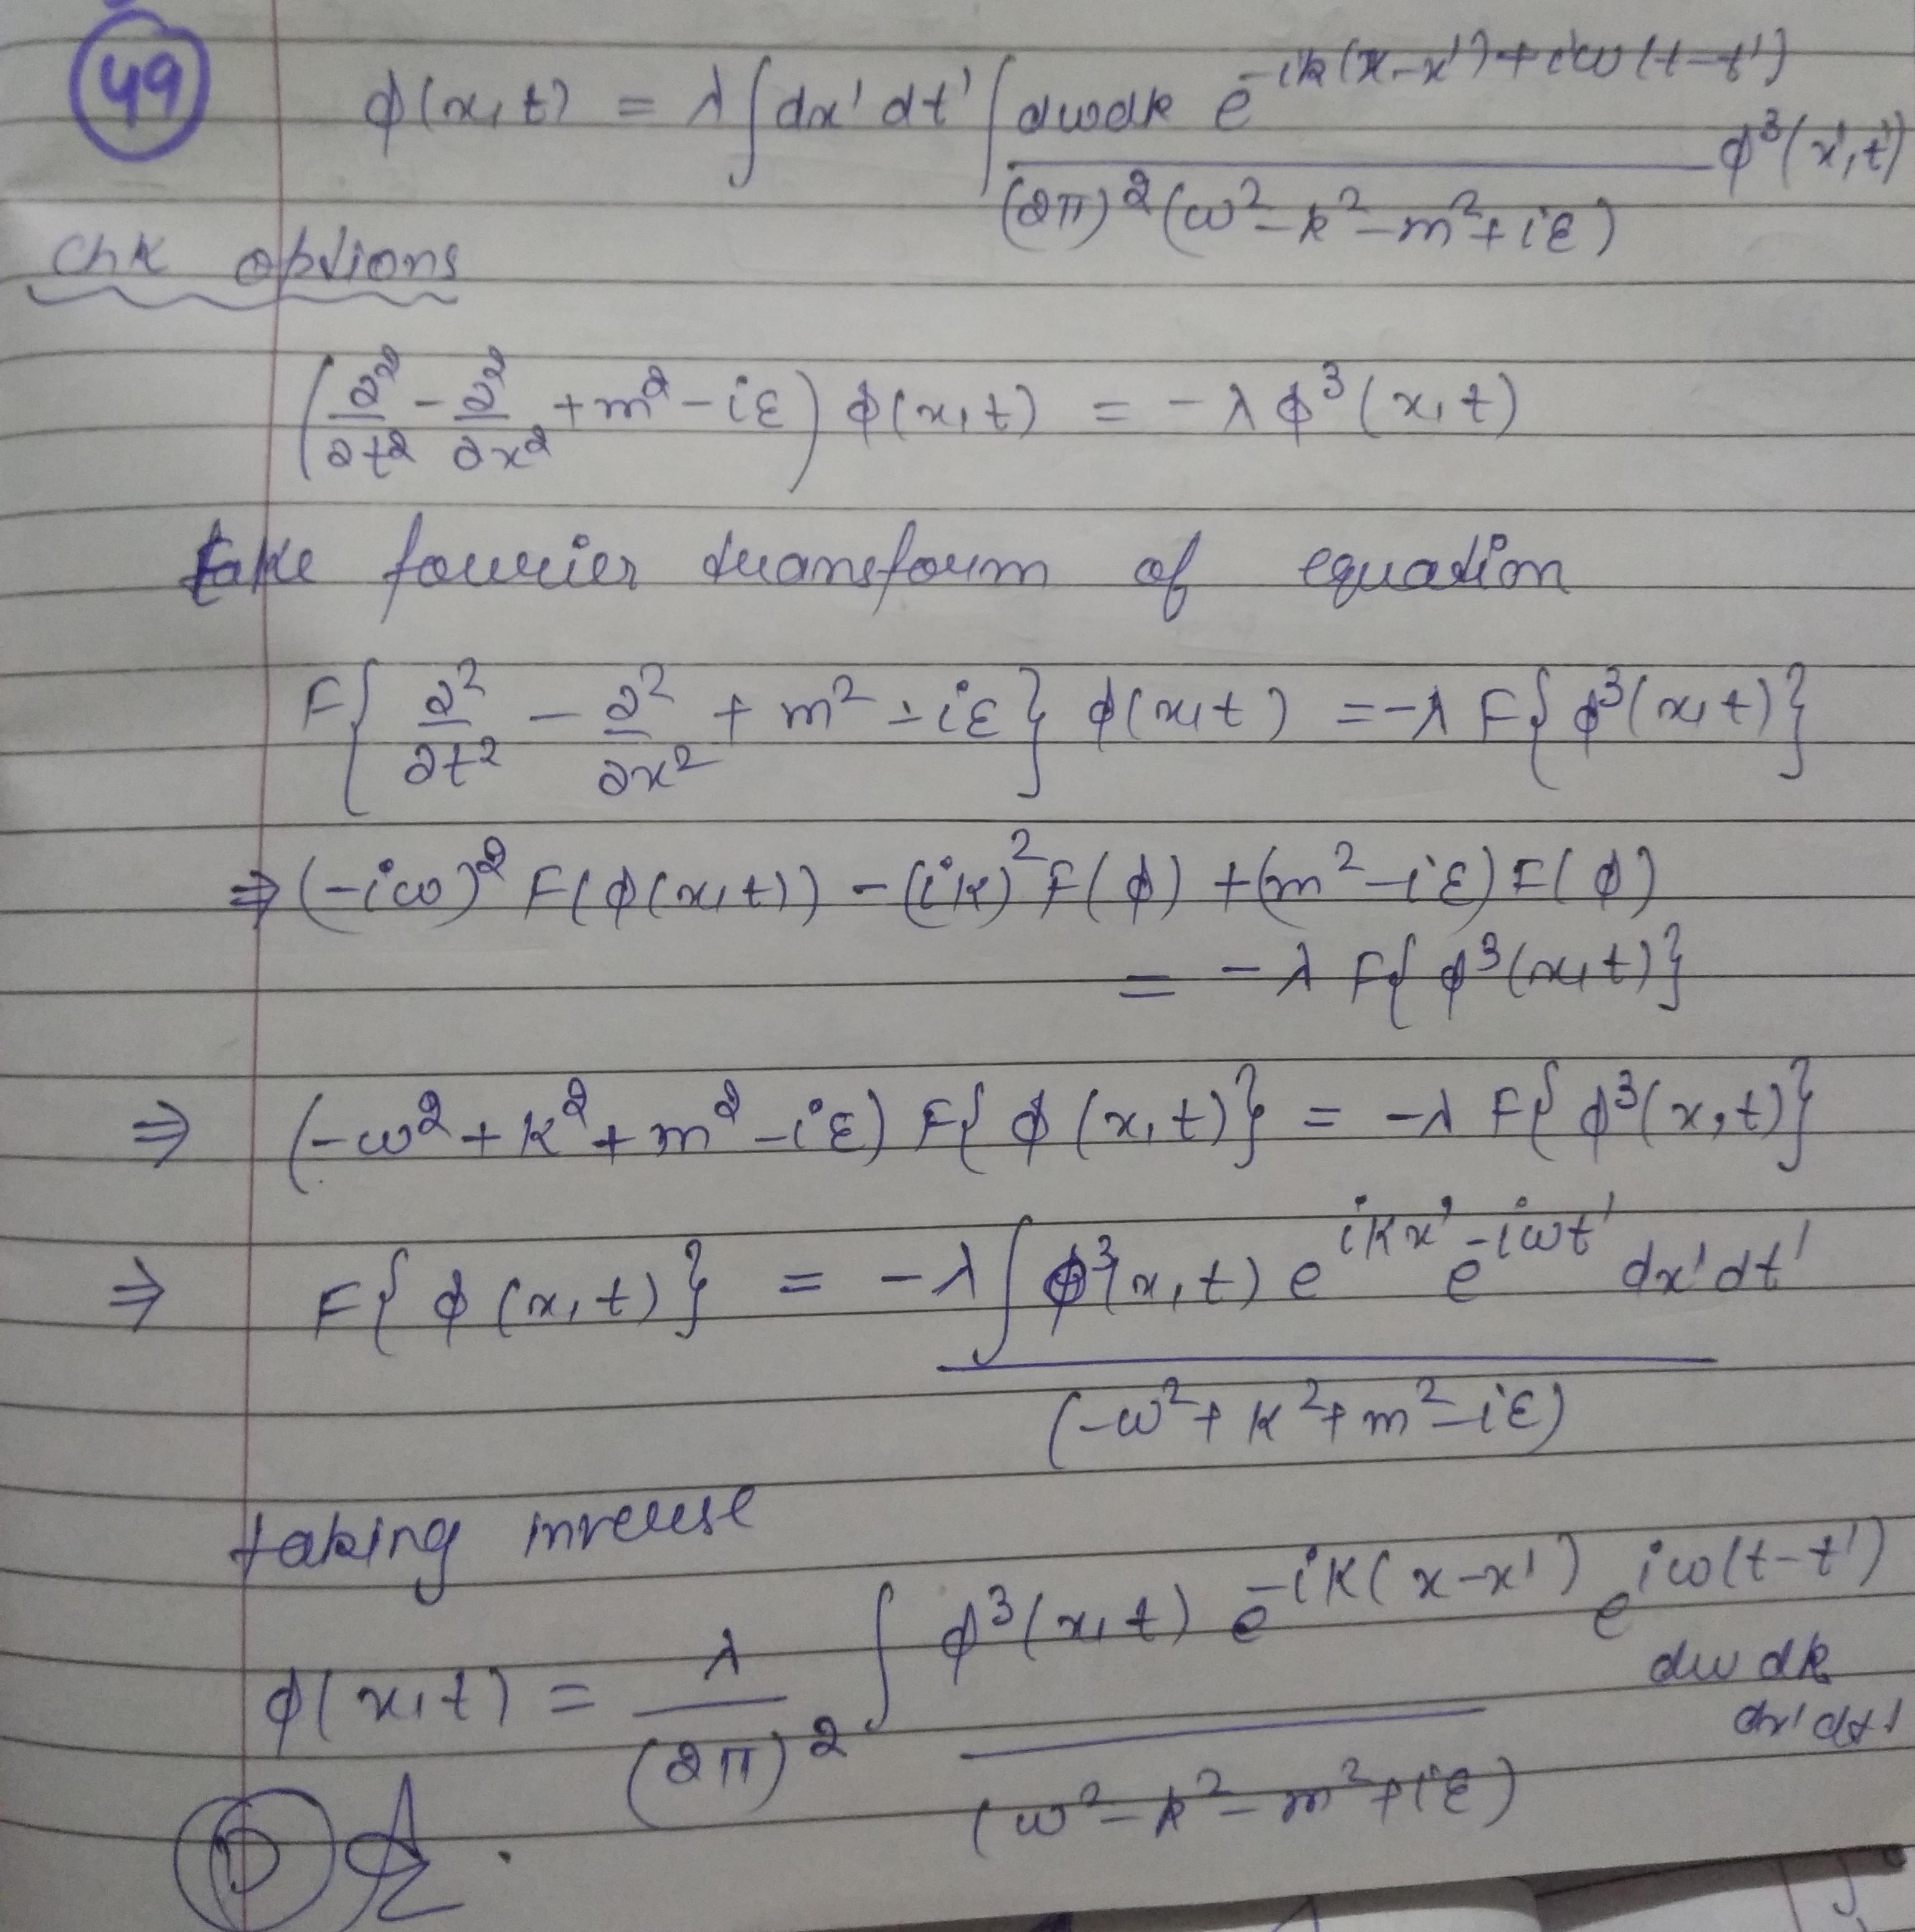 49
ϕ(x,t) = λ∫dx'dt'∫dwdk e^{-ik(x-x')+iω(t-t')} / (2π)²(ω²-k²-m²+iε) ϕ³(x',t')
Chk options
(∂²/∂t² - ∂²/∂x² + m² - iε) ϕ(x,t) = -λϕ³(x,t)
take fourier transform of equation
F{∂²/∂t² - ∂²/∂x² + m² - iε} ϕ(x,t) = -λ F{ϕ³(x,t)}
⇒ (-iω)² F(ϕ(x,t)) - (ik)² F(ϕ) + (m²-iε) F(ϕ)
= -λ F{ϕ³(x,t)}
⇒ (-ω²+k²+m²-iε) F{ϕ(x,t)} = -λ F{ϕ³(x,t)}
⇒ F{ϕ(x,t)} = -λ∫ϕ³(x,t) e^{ikx'} e^{-iωt'} dx'dt' / (-ω²+k²+m²-iε)
taking inverse
ϕ(x,t) = λ/(2π)² ∫ ϕ³(x,t) e^{-ik(x-x')} e^{iω(t-t')} / (ω²-k²-m²+iε) dw dk dx'dt'
D